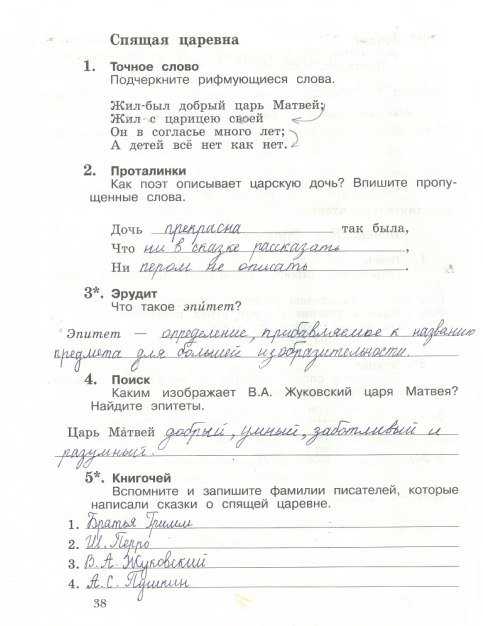 Спящая царевна
1. Точное слово
Подчеркните рифмующиеся слова.
Жил-был добрый царь Матвей;
Жил с царицею своей
Он в согласье много лет;
А детей всё нет как нет.
2. Проталинки
Как поэт описывает царскую дочь? Впишите пропу-
щенные слова.
Дочь прекрасна так была,
Что ни в сказке рассказать,
Ни пером не описать.
3*. Эрудит
Что такое эпи́тет?
Эпитет — определение, прибавляемое к названию
предмета для большей изобразительности.
4. Поиск
Каким изображает В.А. Жуковский царя Матвея?
Найдите эпитеты.
Царь Матвей добрый, умный, заботливый и
разумный.
5*. Книгочей
Вспомните и запишите фамилии писателей, которые
написали сказки о спящей царевне.
1. Братья Гримм
2. Ш. Перро
3. В. А. Жуковский
4. А. С. Пушкин
38